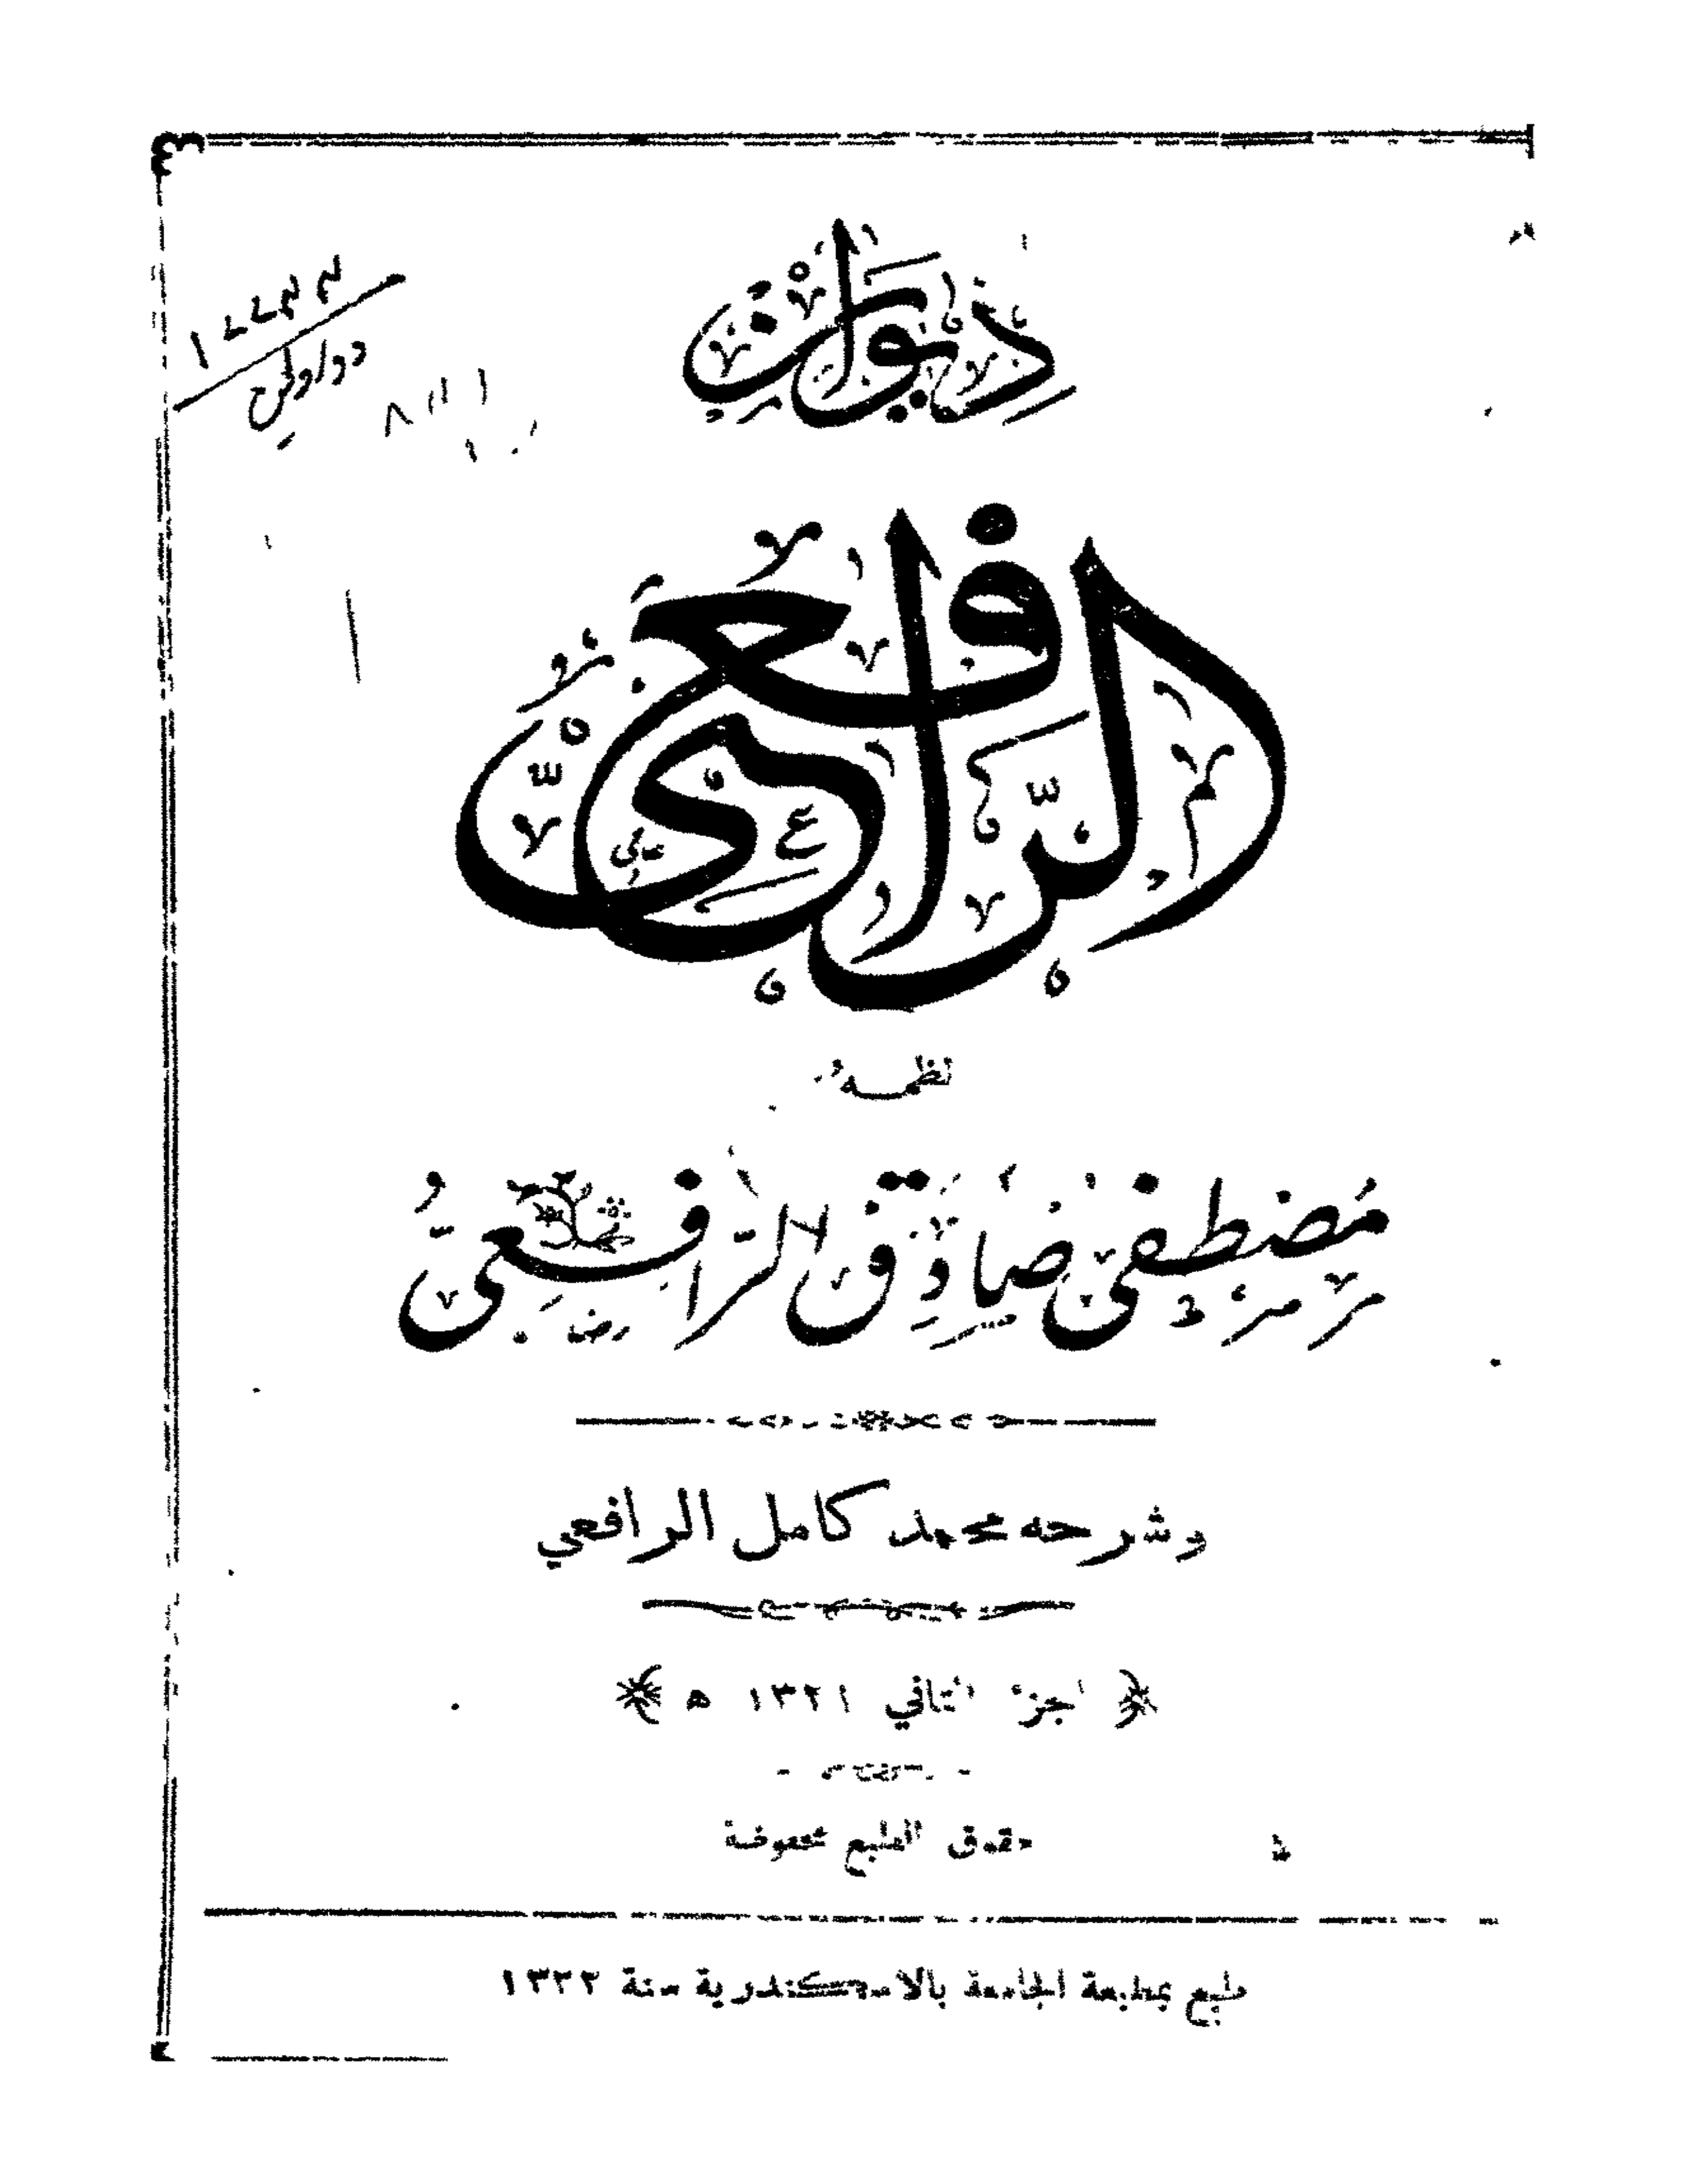 ديوان
الرافعي
نظمه
مصطفى صادق الرافعي
وشرحه محمد كامل الرافعي
الجزء الثاني ١٣٢١ ه
حقوق الطبع محفوظة
طبع بمطبعة الجامعة بالاسكندرية سنة ١٣٢٢
دواوين